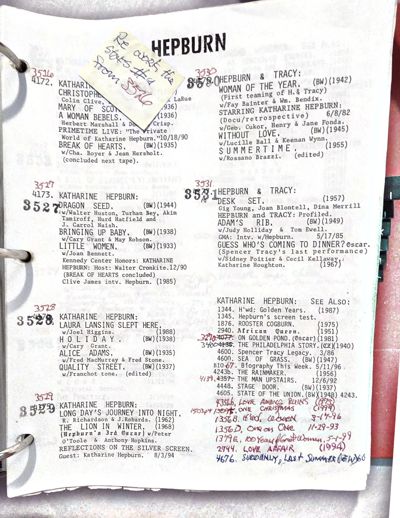 HEPBURN
Re work the
3526
4172. KATHARINE
CHRISTOPHER
Colin Clive, LaRue
MARY OF SCOT (1936)
Herbert Marshall &
A WOMAN REBELS. (1936)
Crisp.
PRIMETIME LIVE: "The Private
World of Katharine Hepburn, "10/18/90
BREAK OF HEARTS. (BW)(1935)
w/Cha. Boyer & Jean Hersholt.
(concluded next tape).
3527
4173. KATHARINE HEPBURN:
3527
DRAGON SEED. (BW)(1944)
w/Walter Huston, Turhan Bey, Akim
Tamiroff, Hurd Hatfield and
J. Carrol Naish.
BRINGING UP BABY. (BW)(1938)
w/Cary Grant & May Robson.
LITTLE WOMEN. (BW)(1933)
w/Joan Bennett.
Kennedy Center Honors: KATHARINE
HEPBURN: Host: Walter Cronkite.12/90
(BREAK OF HEARTS concluded)
Clive James intv. Hepburn. (1985)
3528
3528
KATHARINE HEPBURN:
LAURA LANSING SLEPT HERE.
w/Joel Higgins. (1988)
HOLIDAY. (BW)(1938)
w/Cary Grant.
ALICE ADAMS. (BW)(1935)
w/Fred MacMurray & Fred Stone.
QUALITY STREET. (BW)(1937)
w/Franchot tone. (edited)
3529
3529
KATHARINE HEPBURN:
LONG DAY'S JOURNEY INTO NIGHT.
R. Richardson & J.Robards. (1962)
THE LION IN WINTER. (1968)
(Hepburn's 3rd Oscar) w/Peter
O'Toole & Anthony Hopkins.
REFLECTIONS ON THE SILVER SCREEN.
Guest: Katharine Hepburn. 8/3/94
3530
HEPBURN & TRACY:
WOMAN OF THE YEAR. (BW)(1942)
(First teaming of H.& Tracy)
w/Fay Bainter & Wm. Bendix.
STARRING KATHARINE HEPBURN:
(Docu/retrospective) 6/8/82
w/Geo. Cukor, Henry & Jane Fonda.
WITHOUT LOVE. (BW)(1945)
w/Lucille Ball & Keenan Wynn.
SUMMERTIME. (1955)
w/Rossano Brazzi. (edited)
3531
HEPBURN & TRACY:
DESK SET. (1957)
Gig Young, Joan Blondell, Dina Merrill
HEPBURN and TRACY: Profiled.
ADAM'S RIB. (BW)(1949)
w/Judy Holliday & Tom Ewell.
GMA: Intv. w/Hepburn. 5/17/85
GUESS WHO'S COMING TO DINNER?oscar.
(Spencer Tracy's last performance)
w/Sidney Poitier & Cecil Kellaway,
Katharine Houghton. (1967)
KATHARINE HEPBURN: SEE ALSO:
1344. H'wd: Golden Years. (1987)
1345. Hepburn's screen test.
1876. ROOSTER COGBURN. (1975)
2940. AFRICAN QUEEN. (1951)
ON GOLDEN POND. (Oscar)(1981)
THE PHILADELPHIA STORY.(1940)
4600. Spencer Tracy Legacy. 3/86
4600. SEA OF GRASS. (BW)(1947)
Biography This Week. 5/11/96
THE RAINMAKER. (1956)
4357. THE MAN UPSTAIRS. 12/6/92
4448. STAGE DOOR. (BW)(1937)
4605. STATE OF THE UNION.(BW)(1948) 4243
LOVE AMONG RUINS (1975)
ONE CHRISTMAS (1994)
1356D. ONE ON ONE 11-29-93
2944. LOVE AFFAIR (1994)
4676. SUDDENLY, LAST SUMMER (BW)60